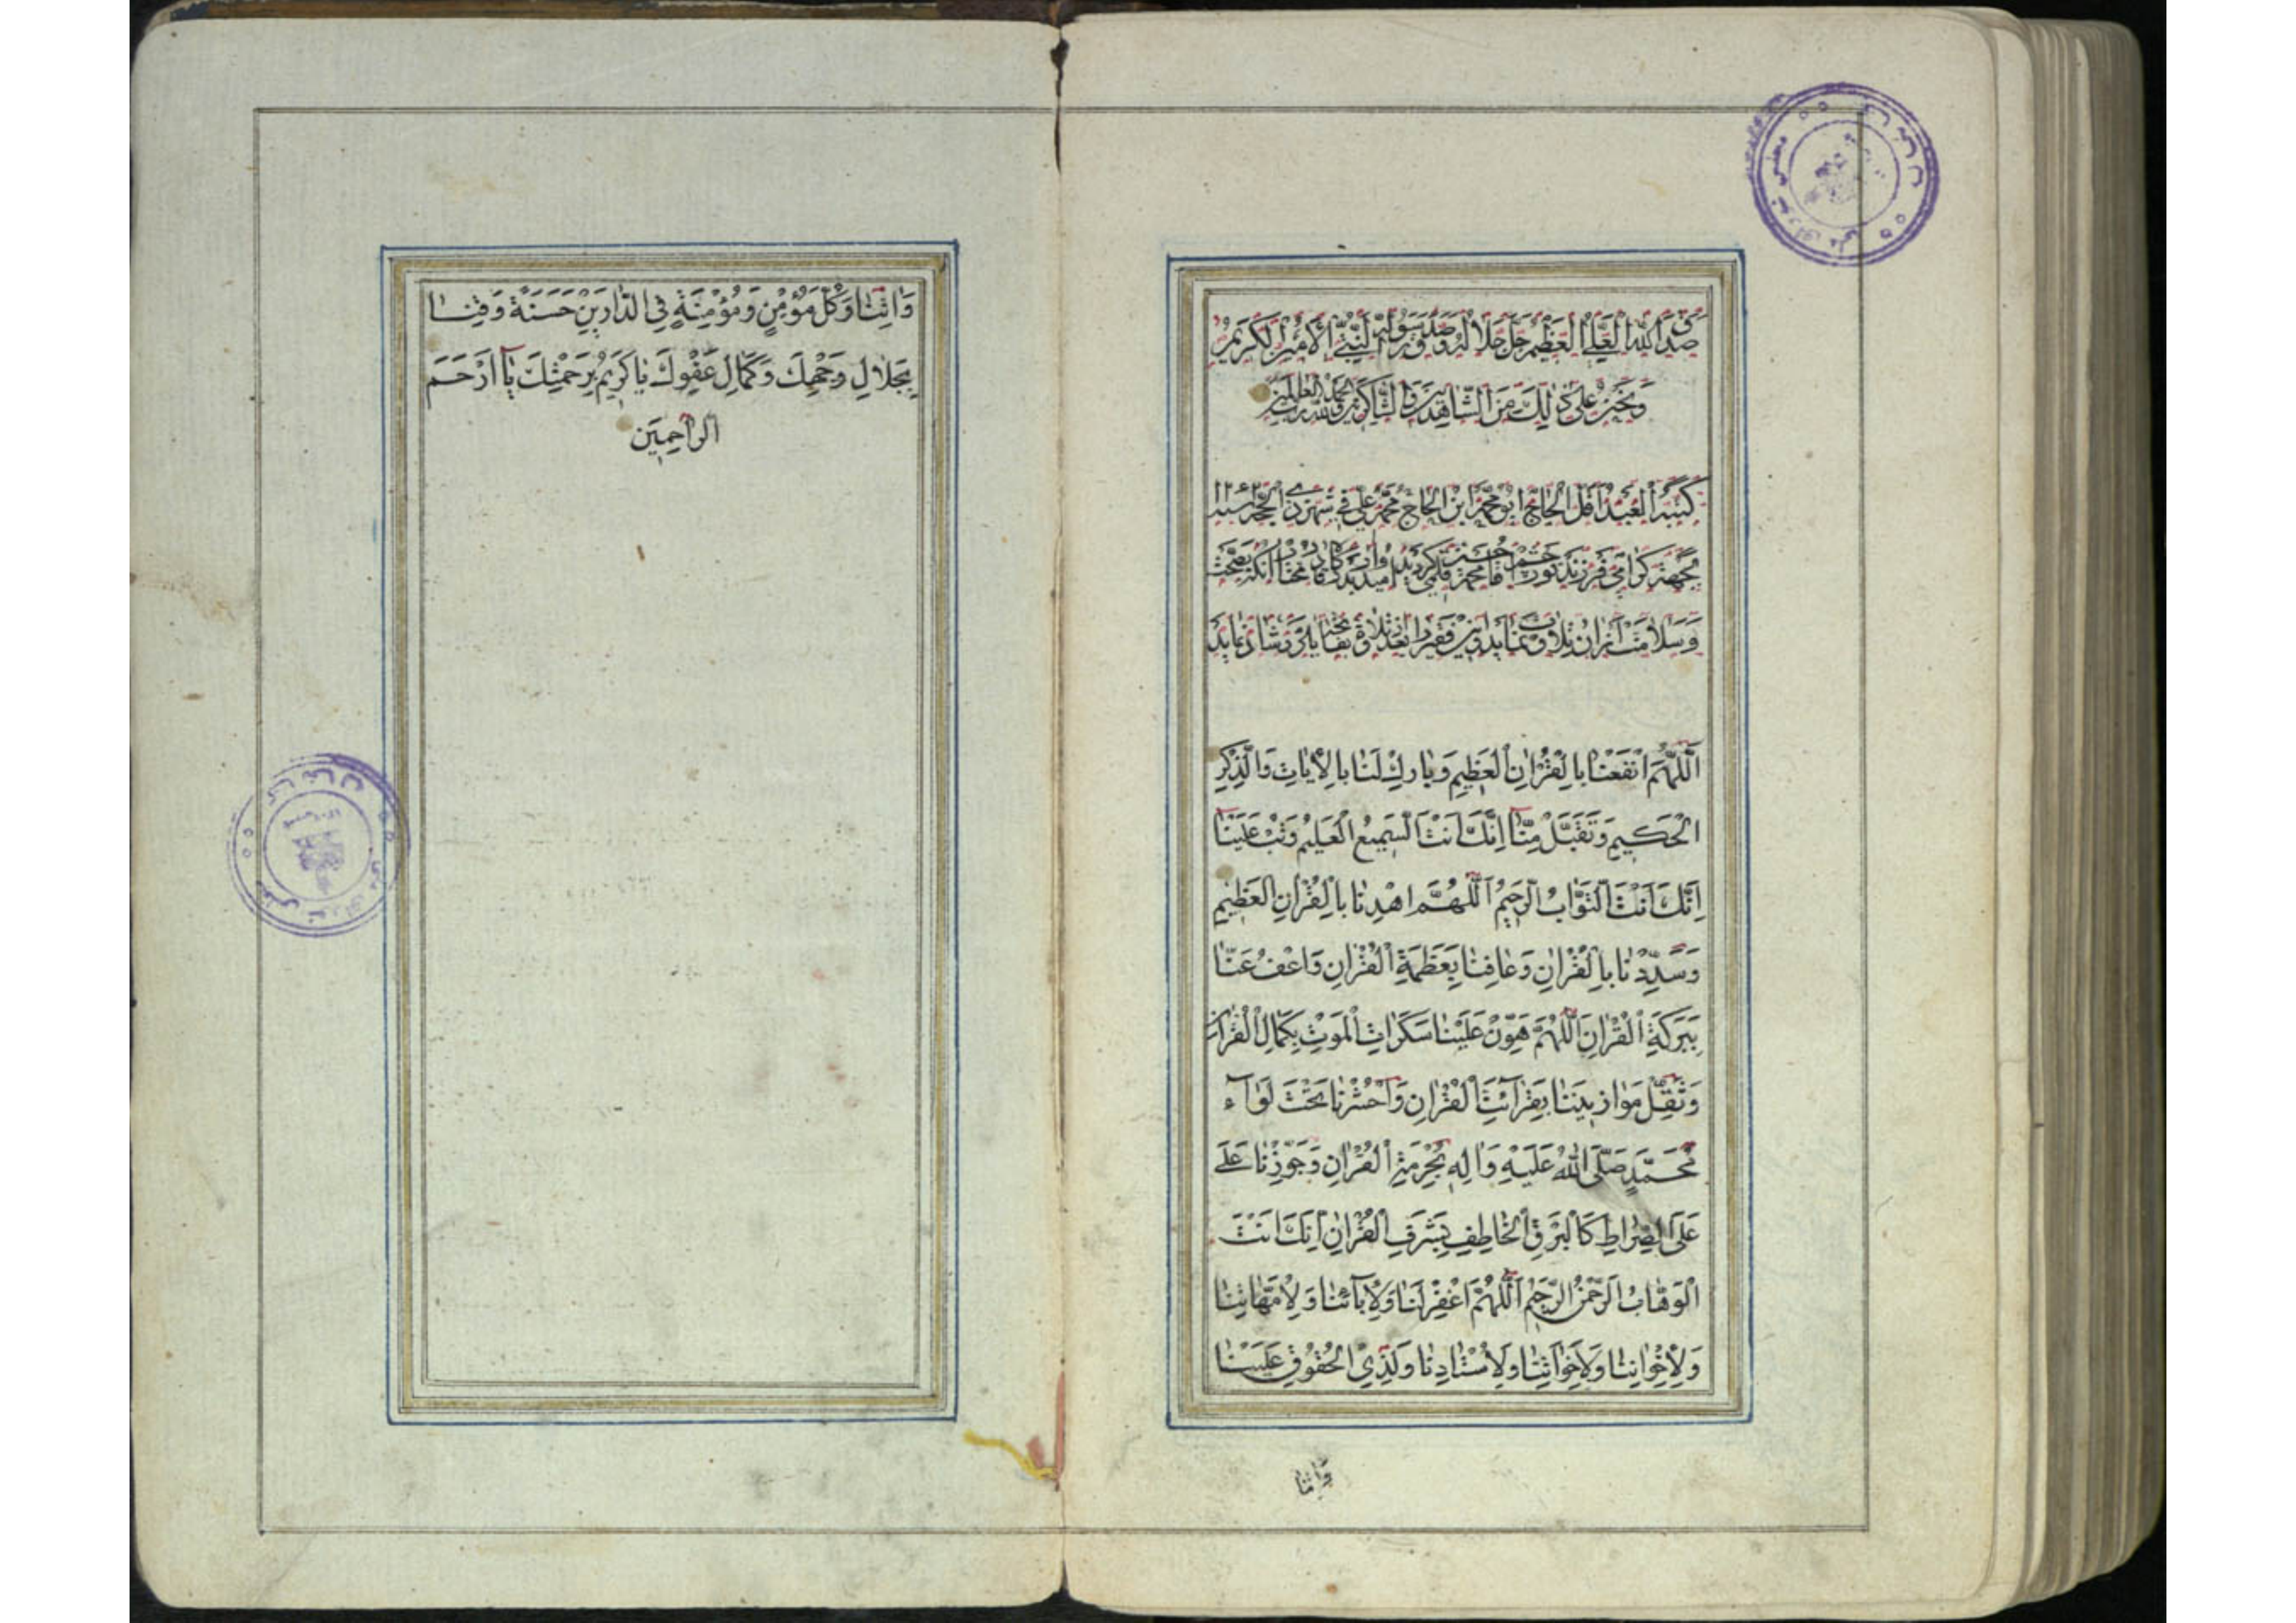 صدق الله العلي العظيم جل جلاله و صدق رسوله النبي الامين الكريم
و نحن على ذلك من الشاهدين و الشاكرين و الحمد لله رب العالمين
كتبه العبد اقل الحاج ابو محمد ابن الحاج محمد علي في شهر ذي الحجه سنه ۱۲۶۲
بجهة كرامي فرزند نور چشم اقا محمد قلمي كرديد اميد انكه بصحت
و سلامت از ان تلاوت نمايد و اين فقير را بعد تلاوة بفاتحه ياد و شاد نمايد
اَللّٰهُمَّ انْفَعْنا بِالْقُرْاٰنِ الْعَظِيمِ وَبارِكْ لَنا بِالْاٰياتِ وَالذِّكْرِ
الْحَكِيمِ وَتَقَبَّلْ مِنّا اِنَّكَ اَنْتَ السَّمِيعُ الْعَلِيمُ وَتُبْ عَلَيْنا
اِنَّكَ اَنْتَ التَّوّابُ الرَّحِيمُ اَللّٰهُمَّ اهْدِنا بِالْقُرْاٰنِ الْعَظِيمِ
وَسَدِّدْنا بِالْقُرْاٰنِ وَعافِنا بِعَظَمَةِ الْقُرْاٰنِ وَاعْفُ عَنّا
بِبَرَكَةِ الْقُرْاٰنِ اَللّٰهُمَّ هَوِّنْ عَلَيْنا سَكَراتِ الْمَوْتِ بِكَمالِ الْقُرْاٰنِ
وَثَقِّلْ مَوازِينَنا بِقِرائَتِ الْقُرْاٰنِ وَاحْشُرْنا تَحْتَ لِوآءِ
مُحَمَّدٍ صَلَّى اللهُ عَلَيْهِ وَاٰلِهِ بِحُرْمَةِ الْقُرْاٰنِ وَجَوِّزْنا عَلَى
عَلَى الصِّراطِ كَالْبَرْقِ الْخاطِفِ بِشَرَفِ الْقُرْاٰنِ اِنَّكَ اَنْتَ
الْوَهّابُ الرَّحْمٰنُ الرَّحِيمُ اَللّٰهُمَّ اغْفِرْ لَنا وَلِاٰبآئِنا وَلِاُمَّهاتِنا
وَلِاِخْوانِنا وَلِاَخَواتِنا وَلِاُسْتادِنا وَلِذِي الْحُقُوقِ عَلَيْنا
وَاٰتِنا
وَاٰتِنا وَكُلَّ مُؤْمِنٍ وَمُؤْمِنَةٍ فِي الدّارَيْنِ حَسَنَةً وَقِنا
بِجَلالِ وَجْهِكَ وَكَمالِ عَفْوِكَ يا كَرِيمُ بِرَحْمَتِكَ يآ اَرْحَمَ
الرّاحِمِينَ